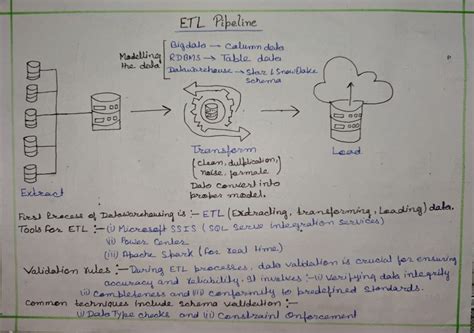 ETL Pipeline
Modelling the data
Bigdata → Column data
RDBMS → Table data
Datawarehouse → Star & Snowflake Schema
Extract
Transform
(clean, dulplication, noise, formate)
Data convert into proper model.
Load
First Process of Datawarehousing is :- ETL (Extracting, transforming, Loading) data.
Tools for ETL :- (i) Microsoft SSIS (SQL Serve Integration Services)
(ii) Power Center
(iii) Apache Spark (for real time)
Validation rules :- During ETL processes, data validation is crucial for ensuring
accuracy and reliability. It involves :- (i) Verifying data integrity
(ii) Completeness and (iii) conformity to predefined standards.
Common techniques include schema validation :-
(i) Data Type checks and (ii) Constraint Enforcement